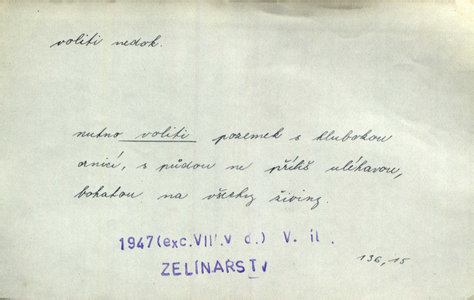 voliti nedok.
nutno voliti pozemek s hlubokou
ornicí, s půdou ne příliš uléhavou,
bohatou na všecky živiny.
1947 (exc. VII. V d.) V. il.
ZELINARSTV
136, 15